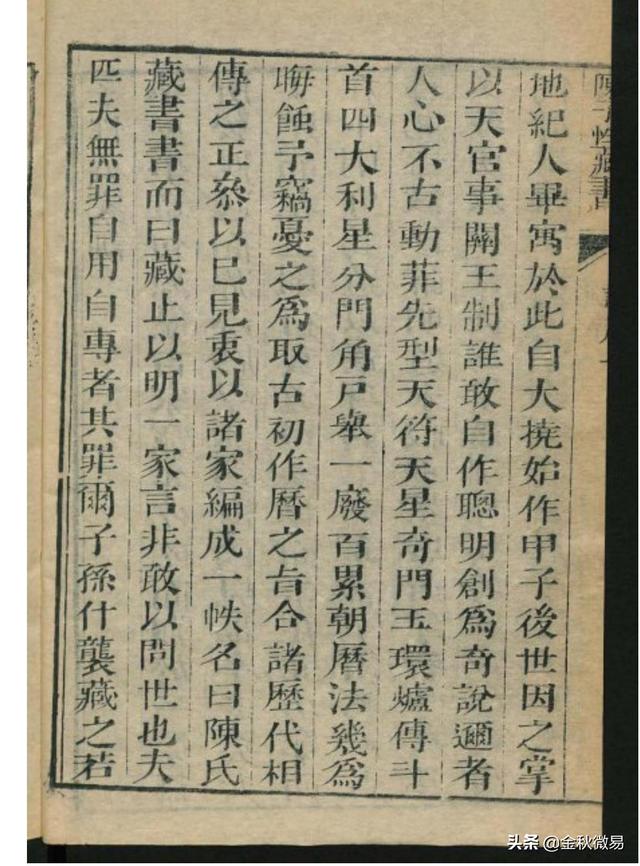 陳子性藏書
地紀人畢寓於此自大撓始作甲子後世因之掌
以天官事關王制誰敢自作聰明創為奇說邇者
人心不古動菲先型天符天星奇門玉環爐傳斗
首四大利星分門角戶舉一廢百累朝曆法幾為
晦蝕予竊憂之為取古初作曆之旨合諸歷代相
傳之正叅以已見衷以諸家編成一帙名曰陳氏
藏書書而曰藏止以明一家言非敢以問世也夫
匹夫無罪自用自專者其罪爾子孫什襲藏之若
头条 @金秋微易